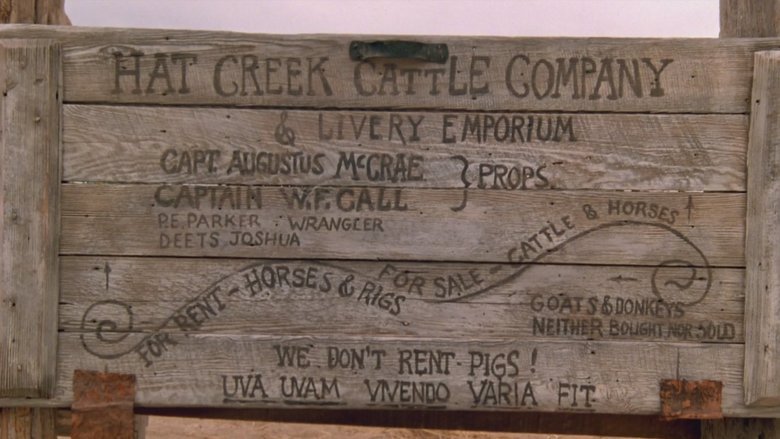 HAT CREEK CATTLE COMPANY
& LIVERY EMPORIUM
CAPT. AUGUSTUS McCRAE
CAPTAIN W.F. CALL
} PROPS.
P.E. PARKER · WRANGLER
DEETS JOSHUA
FOR RENT - HORSES & RIGS
FOR SALE - CATTLE & HORSES
GOATS & DONKEYS
NEITHER BOUGHT NOR SOLD
WE DON'T RENT PIGS!
UVA UVAM VIVENDO VARIA FIT